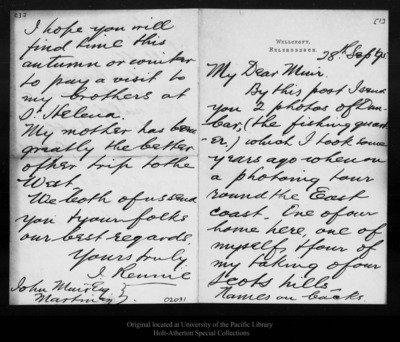 WELLCROFT,
HELENSBURGH.
28th Sept 95
My Dear Muir.
By this post I send
you 2 photos of Dun-
bar, (the fishing quart-
er.) which I took some
years ago when on
a photoing tour
round the East
coast. One of our
home here, one of
myself, & four of
my taking of our
Scots hills.
Names on backs.
I hope you will
find time this
autumn or winter
to pay a visit to
my brothers at
St Helena.
My mother has been
greatly the better
of her trip to the
West.
We both of us send
you & your folks
our best regards.
Yours truly.
J. Rennie
John Muir Esq
Martinez
02091
Original located at University of the Pacific Library
Holt-Atherton Special Collections